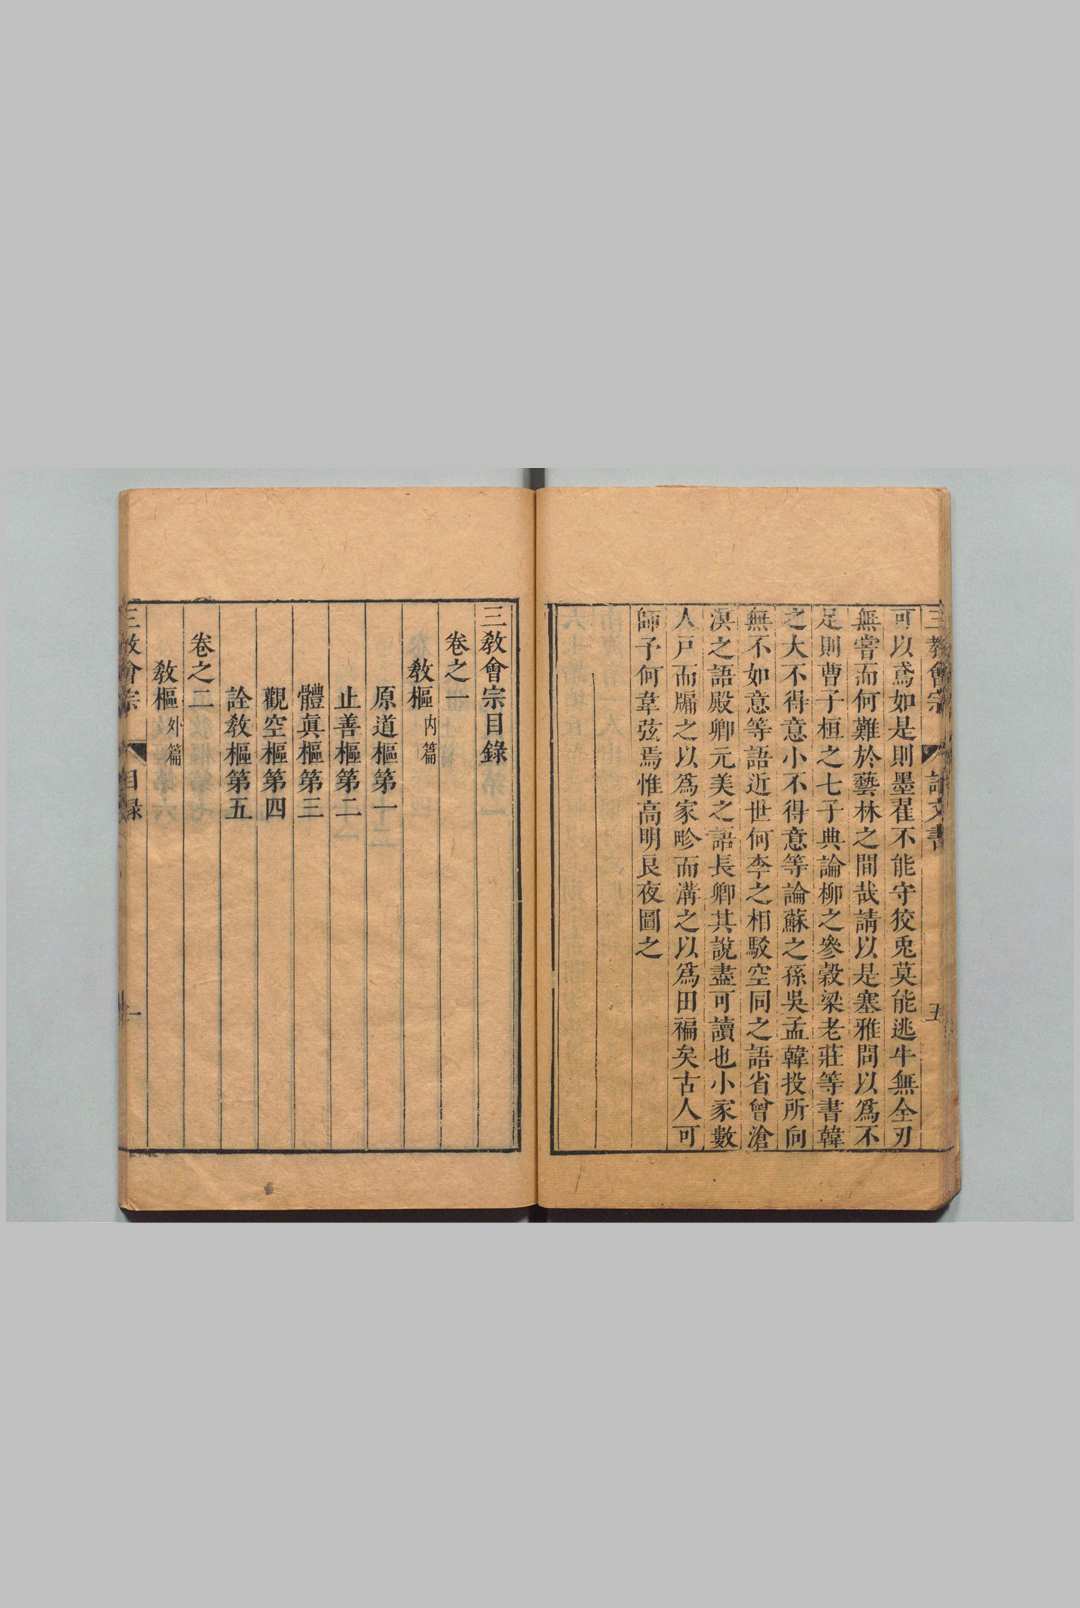 三教會宗
五
可以鳶如是則墨翟不能守狡兎莫能逃牛無全刃
無嘗而何難於藝林之間哉請以是塞雅問以爲不
足則曹子桓之七子典論柳之參穀梁老莊等書韓
之大不得意小不得意等論蘇之孫吳孟韓投所向
無不如意等語近世何李之相駁空同之語省曾滄
溟之語殿卿元美之語長卿其說盡可讀也小家數
人戶而牖之以爲家畛而溝之以爲田褊矣古人可
師予何韋弦焉惟高明艮夜圖之
三教會宗目錄
卷之一
教樞內篇
原道樞第一
止善樞第二
體真樞第三
觀空樞第四
詮敎樞第五
卷之二
敎樞外篇
三教會宗
目録
一